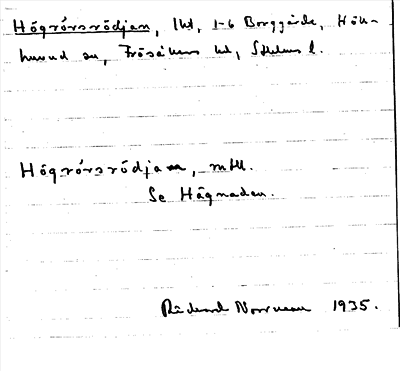 Högrörsrödjan, lht, 1-6 Borggårde, Hök-
huvud sn, Frösåkers hd, Sthlms l.
Högrörsrödjan, mtll.
Se Hägnaden.
Rickard Norrman 1935.